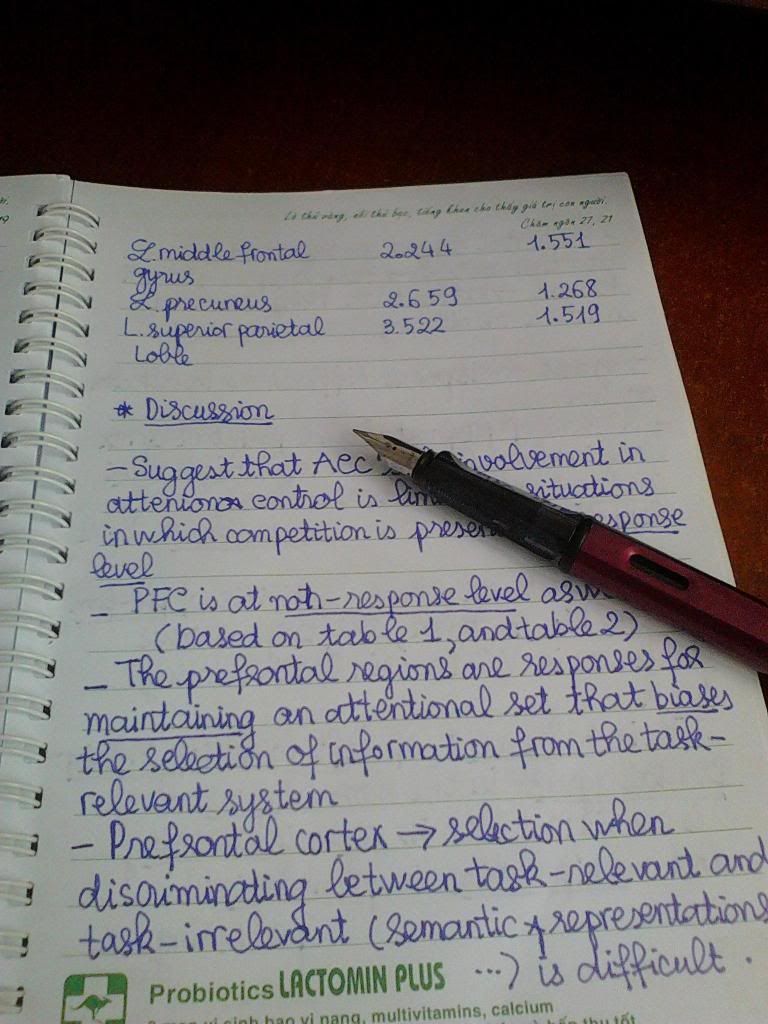 Lò thử vàng, nồi thử bạc, tiếng khen cho thấy giá trị con người.
Châm ngôn 27, 21
L. middle frontal 2.244 1.551
gyrus
L. precuneus 2.659 1.268
L. superior parietal 3.522 1.519
Loble
* Discussion
- Suggest that ACC involvement in
attenion control is situations
in which competition is response
level
- PFC is at non-response level as
(based on table 1, and table 2)
- The prefrontal regions are responses for
maintaining an attentional set that biases
the selection of information from the task-
relevant system
- Prefrontal cortex → selection when
discriminating between task-relevant and
task-irrelevant (semantic representations
...) is difficult.
Probiotics LACTOMIN PLUS
men vi sinh bao vi nang, multivitamins, calcium
hấp thu tốt